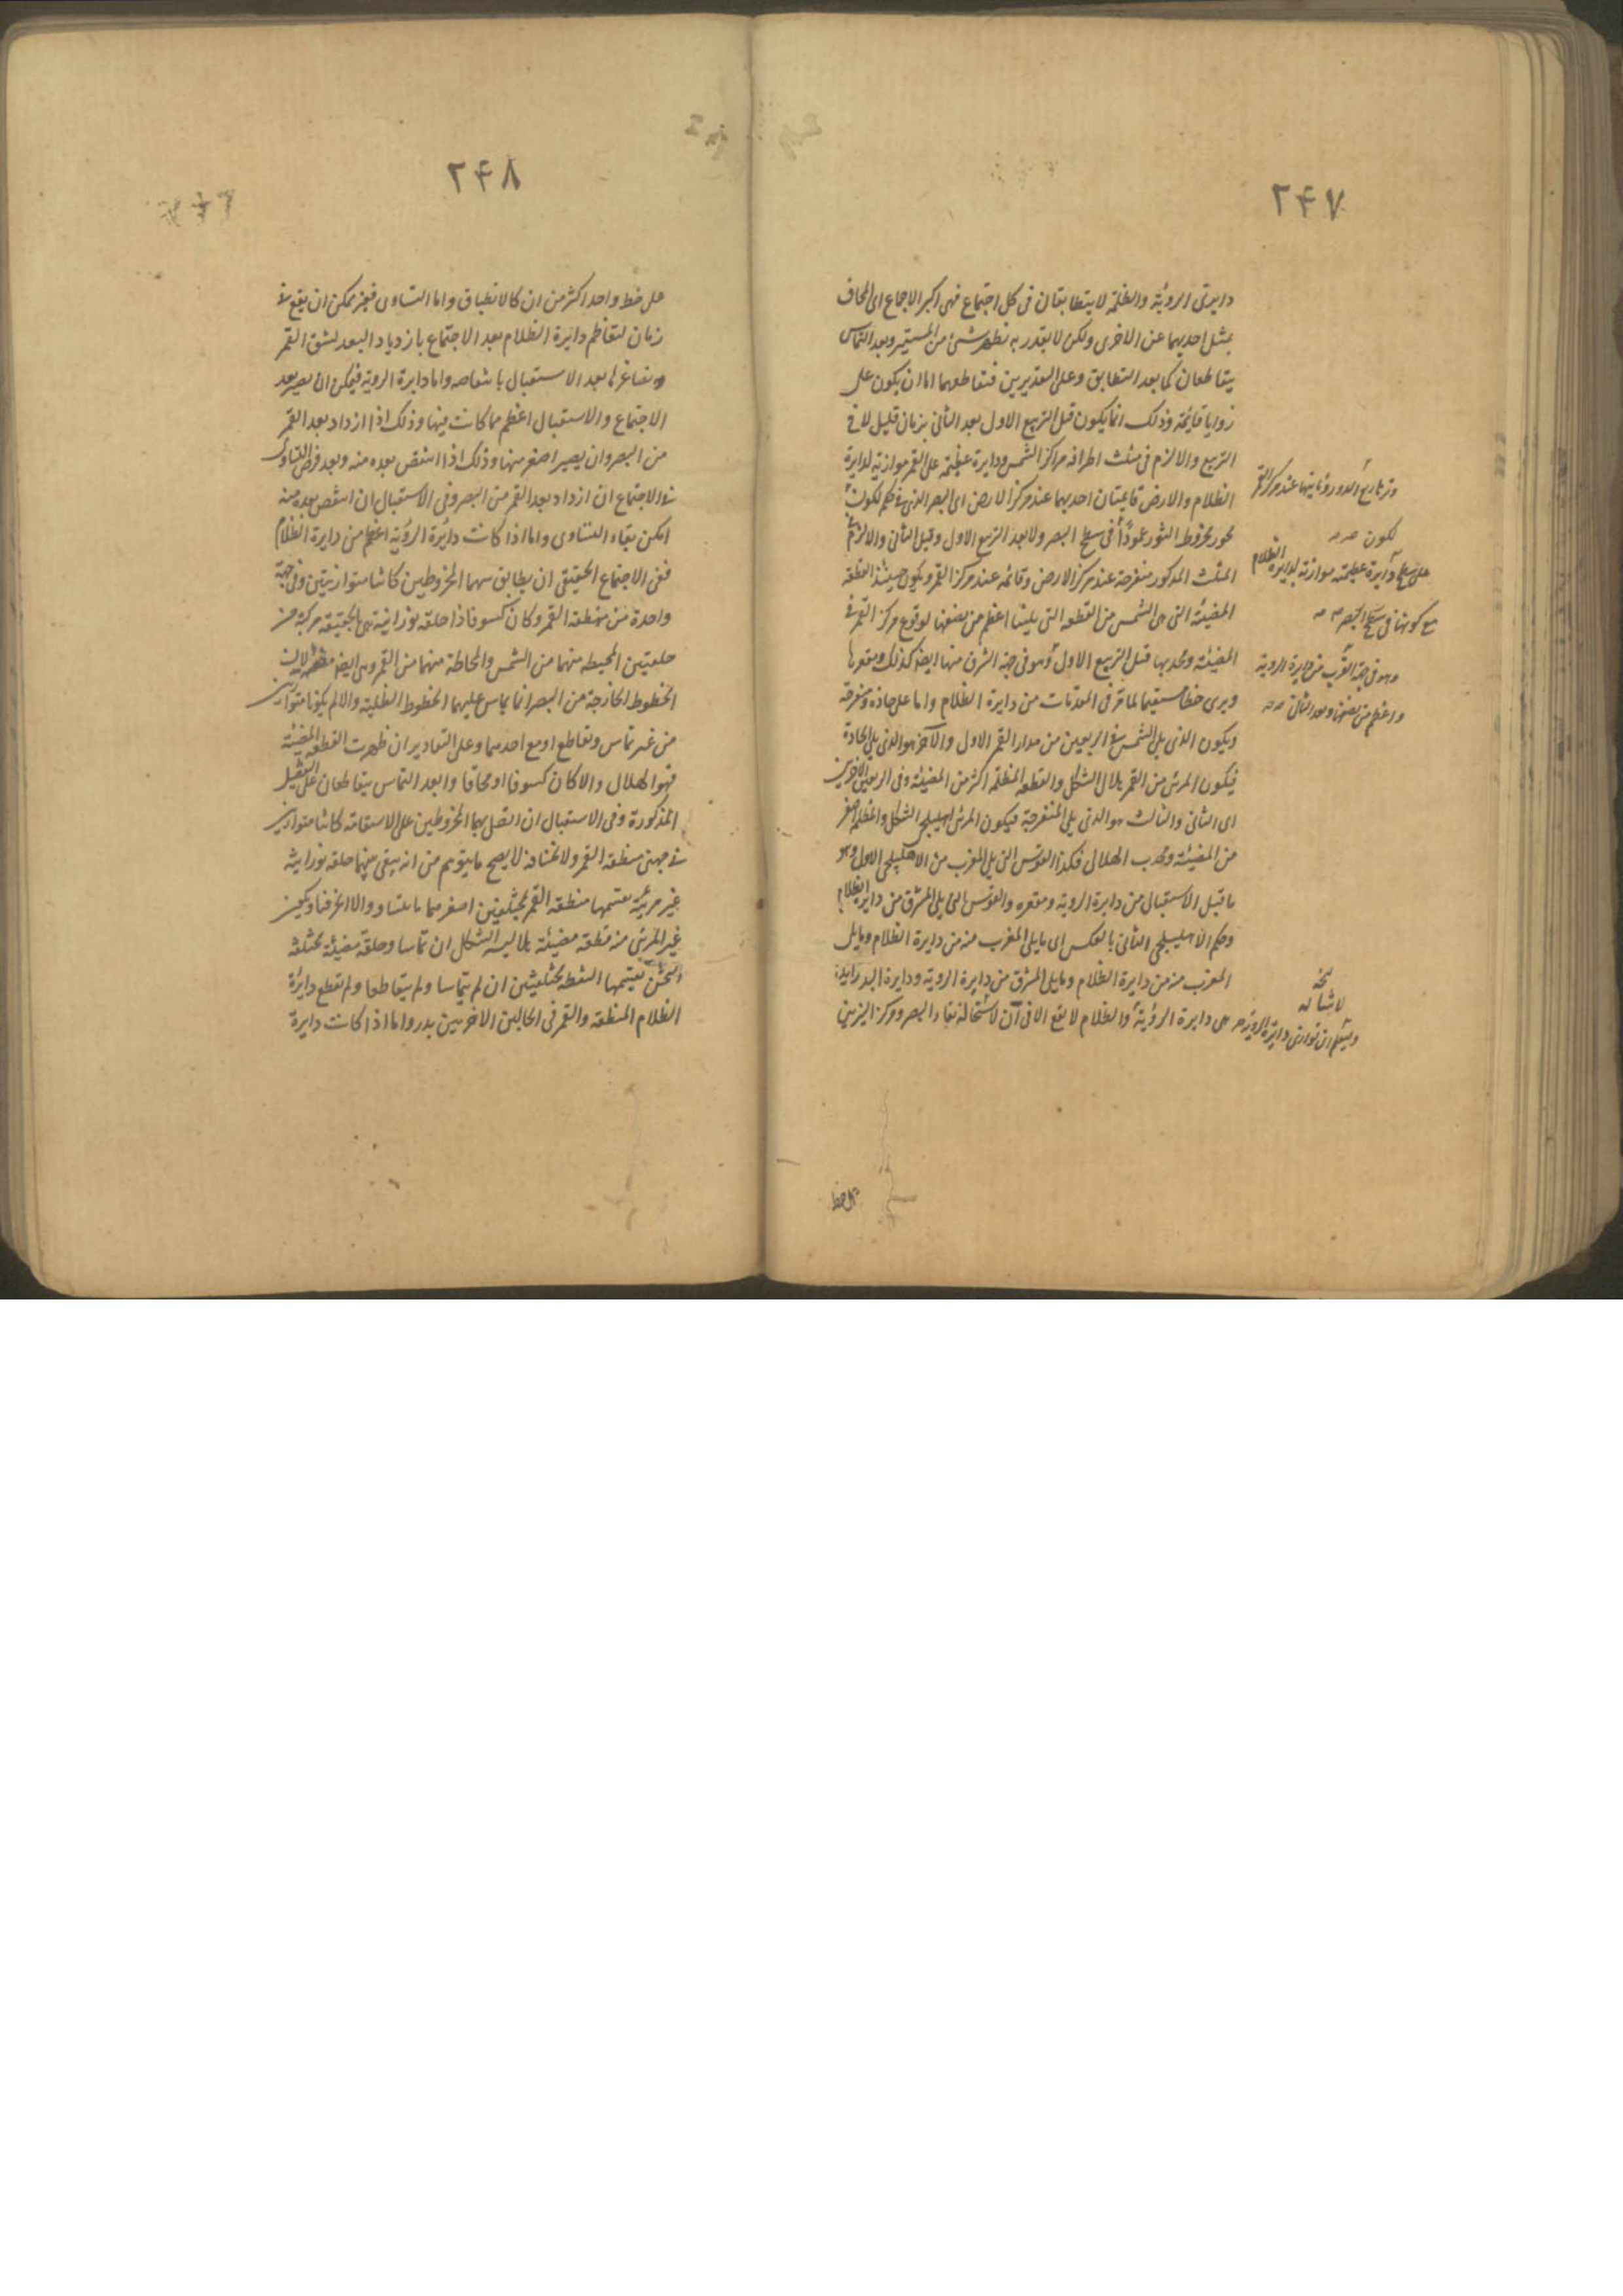 ٢۴٧
دايرتى الروية والظلمة لا يتطابقان فى كل اجتماع فهى اكبر الاجماع اى المحاق
يميل احديهما عن الاخرى ولكن لا بقدر به يظهر شئ من المستنير وبعد التماس
يتقاطعان كما بعد التطابق وعلى التقديرين فتقاطعهما اما ان يكون على
زوايا قايمة وذلك انما يكون قبل التربيع الاول بعد الثانى بزمان قليل لا فى
التربيع والا لزم فى مثلث اطرافه مراكز الشمس ودايرة عظيمة على القمر موازية لدايرة
الظلام والارض قائمتان احديهما عند مركز الارض اى البصر الذى فى حكم
محور مخروط النور عموداً فى سطح البصر ولا بعد التربيع الاول وقبل الثانى والا لزم
المثلث المذكور منفرجة عند مركز الارض وقائمة عند مركز القمر ويكون حينئذ القطعة
المضيئة التى من الشمس من القطعه التى يلينا اعظم من نصفها لوقوع مركز القمر فى
المضيئة ومحدبها قبل التربيع الاول وهو فى جهة الشرق منها ايضا كذلك ومقعرها
ويرى خطا مستقيما لما مر فى المقدمات من دايرة الظلام واما على حادة ومنفرجة
ويكون الذى يلى الشمس فى الربعين من مدار القمر الاول والآخر هو الذى يلى الحادة
فيكون المرئى من القمر هلالى الشكل والقطعه المظلمة اكثر من المضيئة وفى الربعين الاخرين
اى الثانى والثالث هو الذى يلى المنفرجة فيكون المرئى اهليلجى الشكل والمظلم اصغر
من المضيئة ومحدب الهلالى فكذا القوس التى يلى المغرب من الاهليلجى الاول وهو
ما قبل الاستقبال من دايرة الروية ومقعره والقوس التى يلى المشرق من دايرة الظلام
وحكم الاهليلجى الثانى بالعكس اى ما يلى المغرب منه من دايرة الظلام وما يلى
المغرب منه من دايرة الظلام وما يلى المشرق من دايرة الروية ودايرة البدر
هى دايرة الرؤية والظلام لا يقع الا فى آن لاستحالة بقاء البصر ومركز النيرين
عند مركز القمر
لكون
على سطح دايرة عظيمة موازية لدايرة الظلام
مع كونها فى سطح البصر
وهو فى جهة القرب من دايرة الروية
واعظم من نصفها وبعد الثانى
نسخه
ويعلم ان توازى دايرة الروية
على خط
٢۴٨
على خط واحد اكثر من ان كالانطباق واما التساوى فغير ممكن ان يقع فى
زمان لتعاظم دايرة الظلام بعد الاجتماع بازدياد البعد لشق القمر
وتصاغرها بعد الاستقبال بانتقاصه واما دايرة الروية فيمكن ان يصير بعد
الاجتماع والاستقبال اعظم مما كانت فيها وذلك اذا ازداد بعد القمر
من البصر وان يصير اصغر منها وذلك اذا انتقص بعده منه وبعد فرض التساوى
فى الاجتماع ان ازداد بعد القمر من البصر وفى الاستقبال ان انتقص بعده منه
امكن بقاء التساوى واما اذا كانت دائرة الروية اعظم من دايرة الظلام
ففى الاجتماع الحقيقى ان يطابق سهما المخروطين كانتا متوازيتين وفى جهة
واحدة من منطقة القمر وكان كسوفا ذا حلقه نورانية هى بالحقيقه مركبة من
حلقتين المحيطه منهما من الشمس والمحاطة منهما من القمر وهى ايضا
الخطوط الخارجة من البصر انما يماس عليهما الخطوط الظلية والا لم يكونا متوازيتين
من غير تماس وتقاطع او مع احدهما وعلى التقادير ان ظهرت القطعه المضيئة
فهو الهلال والا كان كسوفا او محاقا وابعد التماس يتقاطعان على التفصيل
المذكورة وفى الاستقبال ان اتصل سهما المخروطين على الاستقامة كانتا متوازيتين
فى جهتى منطقة القمر ولا محالة لا يصح ما يتوهم من انه يبقى بينهما حلقه نورانية
غير مرئية يقسمها منطقة القمر بمختلفين اصغر مما بالتساو والا انحرفتا ويكون
غير المرئى منه قطعة مضيئة هلالية الشكل ان تماسا وحلقة مضيئة مختلفة
الثخن يقسمها المنطقه بمختلفين ان لم يتماسا ولم يتقاطعا ولم تقطع دايرة
الظلام المنطقه والقمر فى الحالين الاخريين بدر واما اذا كانت دايرة